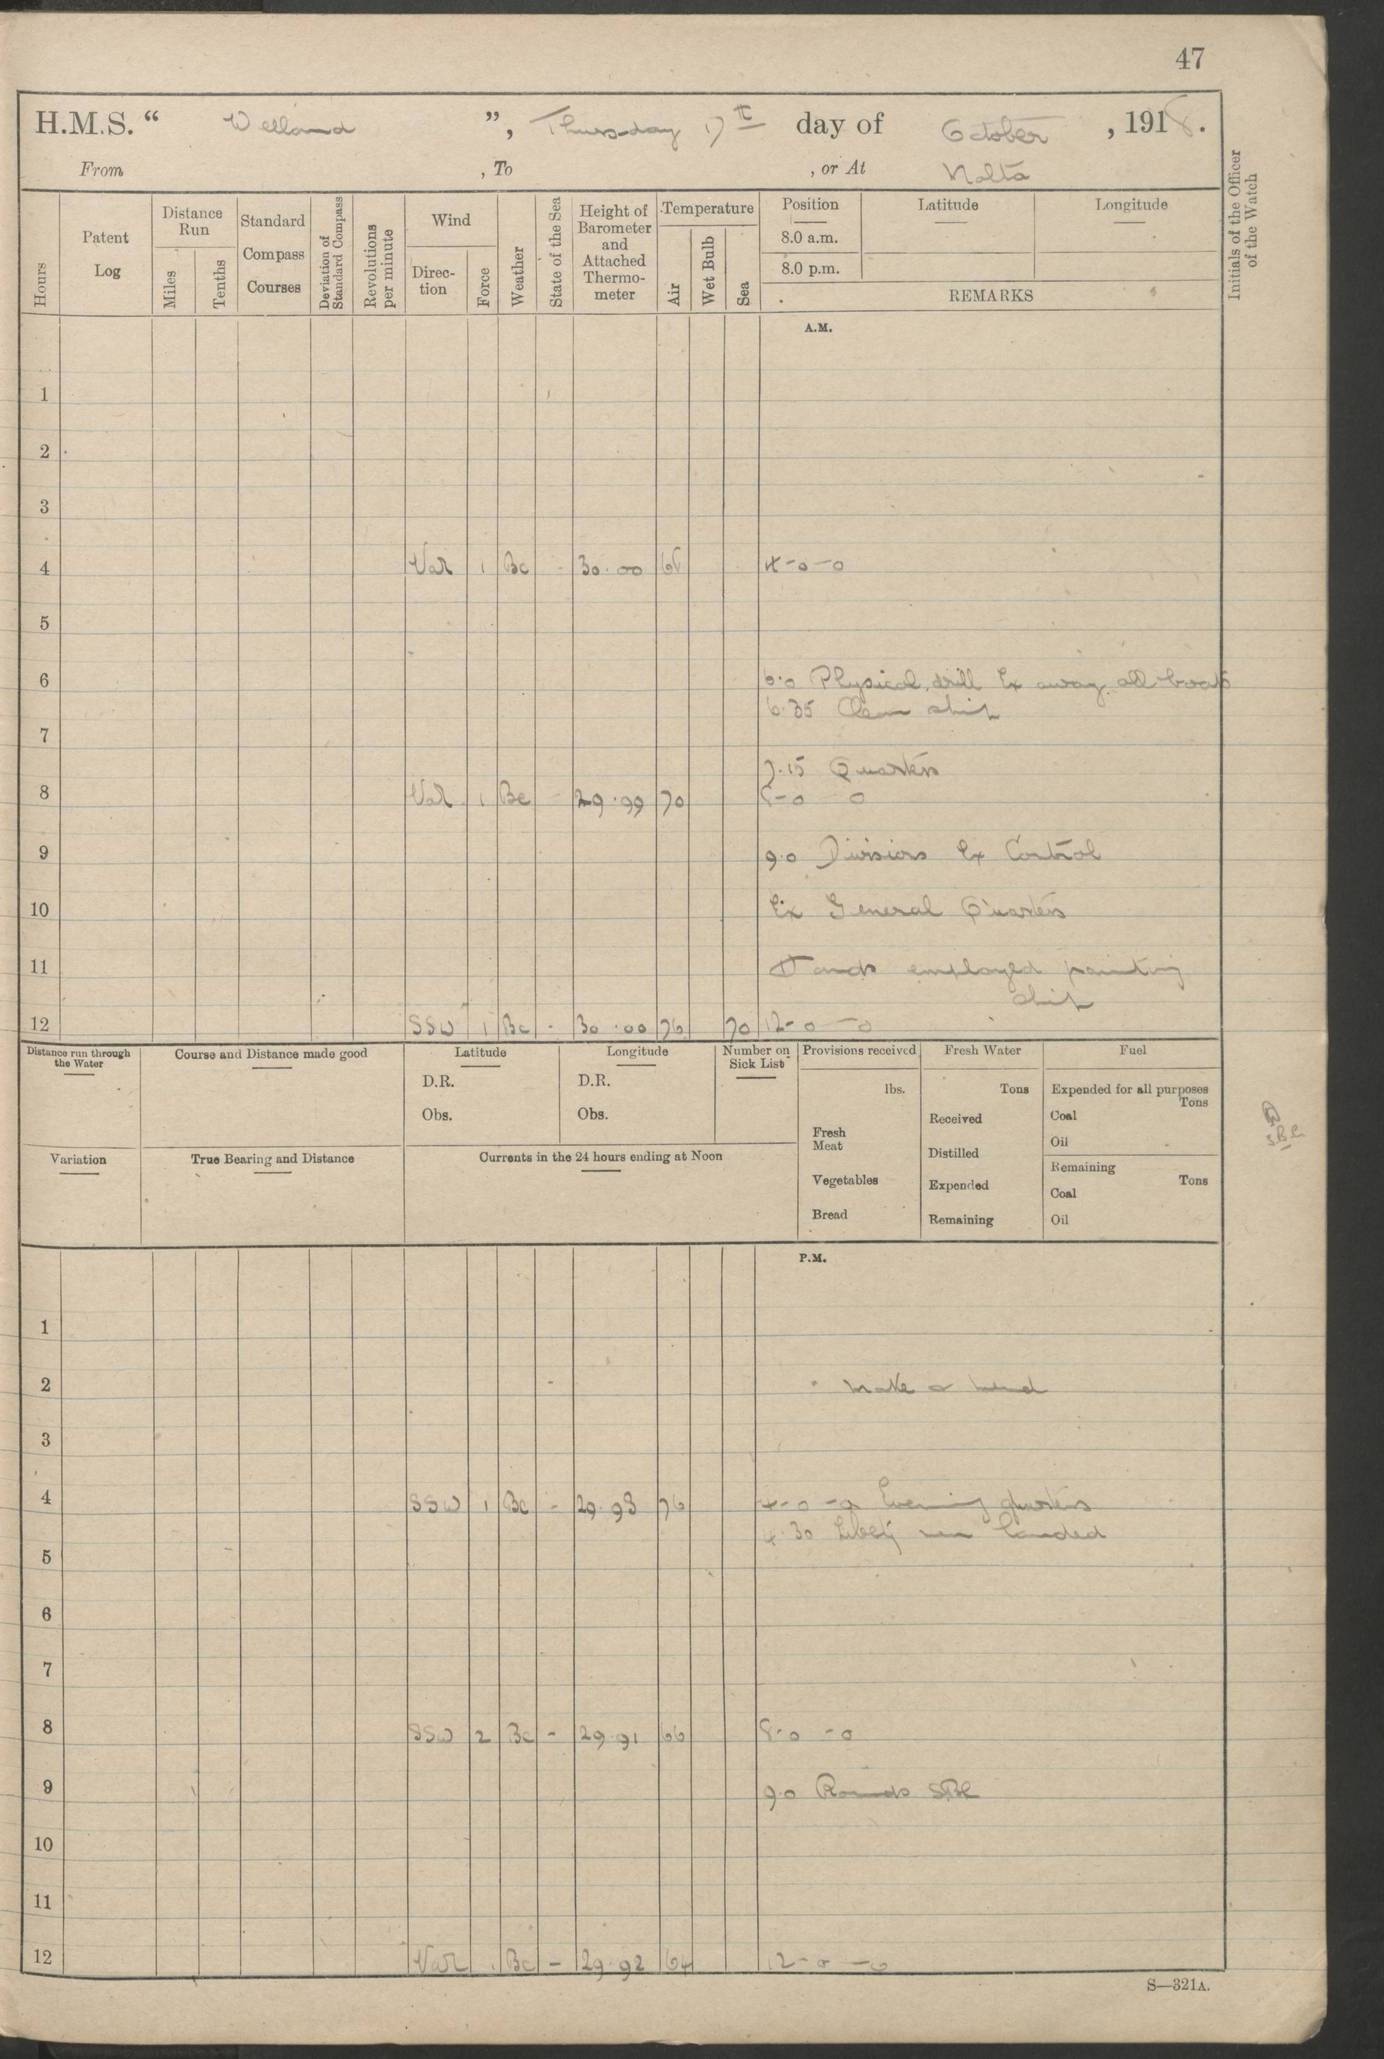 47
H.M.S. “ Welland ”, Thursday 17th day of October , 1918.
From , To , or At Malta
Hours
Patent Log
Distance Run
Miles
Tenths
Standard Compass Courses
Deviation of Standard Compass
Revolutions per minute
Wind
Direction
Force
Weather
State of the Sea
Height of Barometer and Attached Thermometer
Temperature
Air
Wet Bulb
Sea
Position
8.0 a.m.
8.0 p.m.
Latitude
Longitude
REMARKS
Initials of the Officer of the Watch
A.M.
1
2
3
4 Var 1 Bc - 30.00 4-0-0
5
6 6.0 Physical drill Ex away all boats
6.35 Clean ship
7
7.15 Quarters
8 Var 1 Bc - 29.99 70 8-0 0
9 9.0 Divisions Ex Control
10 Ex General Quarters
11 Hands employed painting
ship
12 SSW 1 Bc - 30.00 76 70 12-0-0
Distance run through the Water
Course and Distance made good
Latitude
D.R.
Obs.
Longitude
D.R.
Obs.
Number on Sick List
Provisions received
lbs.
Fresh Meat
Vegetables
Bread
Fresh Water
Tons
Received
Distilled
Expended
Remaining
Fuel
Expended for all purposes
Tons
Coal
Oil
Remaining
Tons
Coal
Oil
Variation
True Bearing and Distance
Currents in the 24 hours ending at Noon
P.M.
1
2 Make a mend
3
4 SSW 1 Bc - 29.93 76 4-0-0 Evening quarters
4.30 Liberty men landed
5
6
7
8 SSW 2 Bc - 29.91 66 8-0-0
9 9.0 Rounds
10
11
12 Var Bc - 29.92 64 12-0-0
S—321A.